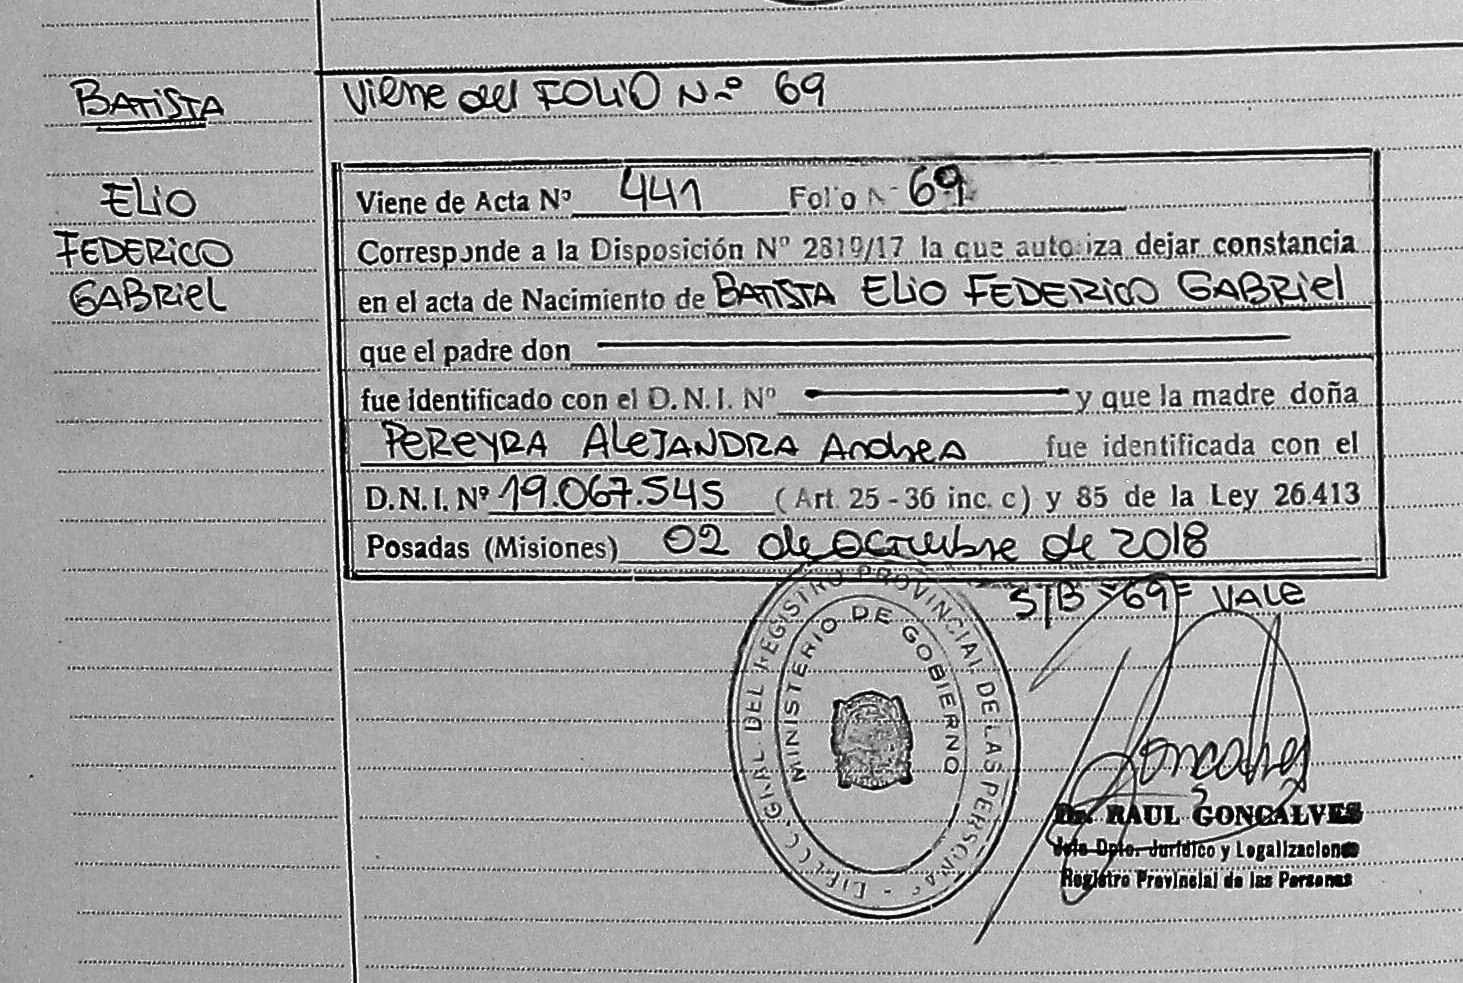 BATISTA
ELIO
FEDERICO
GABRIEL
Viene del FOLIO Nº 69
Viene de Acta Nº 441 Folio Nº 69
Corresponde a la Disposición Nº 2819/17 la que autoriza dejar constancia
en el acta de Nacimiento de BATISTA ELIO FEDERICO GABRIEL
que el padre don
fue identificado con el D.N.I. Nº y que la madre doña
PEREYRA ALEJANDRA Andrea fue identificada con el
D.N.I. Nº 19.067.545 (Art. 25 - 36 inc. c) y 85 de la Ley 26.413
Posadas (Misiones) 02 de octubre de 2018
S/B "69" VALE
GRAL. DEL REGISTRO PROVINCIAL DE LAS PERSONAS
MINISTERIO DE GOBIERNO
Gonçalves
Dr. RAUL GONÇALVES
Jefe Dpto. Jurídico y Legalizaciones
Registro Provincial de las Personas